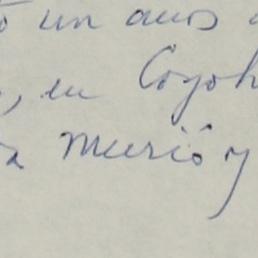 un anos
, en Coyoh
murió y